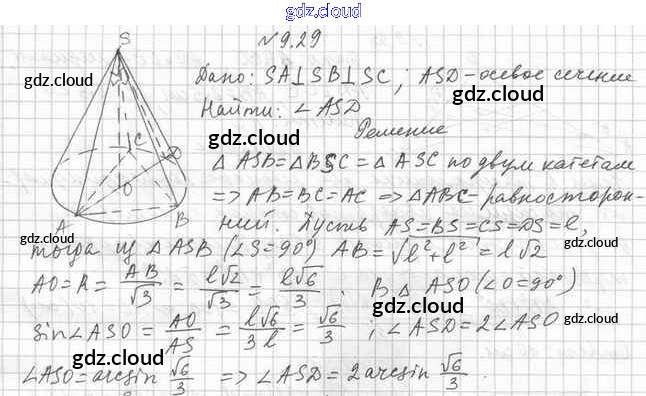 gdz.cloud
№9.29
S
gdz.cloud
Дано: SA⊥SB⊥SC; ASD-осевое сечение
gdz.cloud
Найти: ∠ASD
gdz.cloud
Решение
△ASB=△BSC=△ASC по двум катетам
gdz.cloud
C D
O
A B
=> AB=BC=AC => △ABC-равносторон-
ний. Пусть AS=BS=CS=DS=l,
тогда из △ASB (∠S=90°) AB=√l²+l²=l√2
gdz.cloud
AO=R=AB/√3=l√2/√3=l√6/3. В △ASO(∠O=90°)
gdz.cloud
sin∠ASO=AO/AS=l√6/3l=√6/3; ∠ASD=2∠ASO
gdz.cloud
gdz.cloud
∠ASO=arcsin √6/3 => ∠ASD=2arcsin √6/3.
gdz.cloud